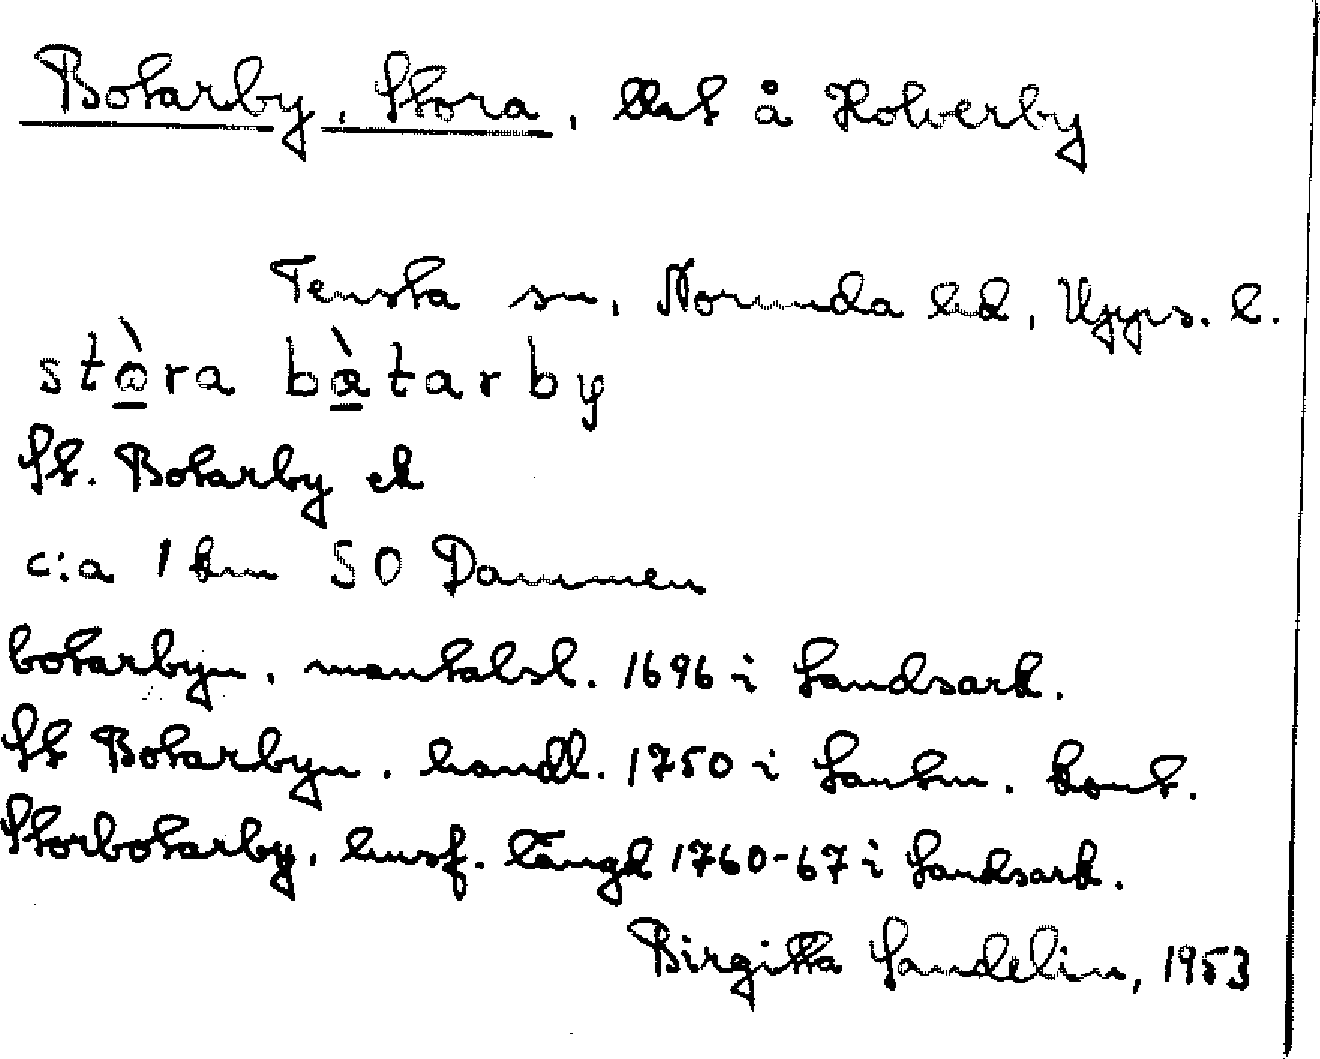 Botarby, Stora, lht å Holverby
Tensta sn, Norunda hd, Upps. l.
stòra bàtarby
St. Botarby ek
c:a 1 km SO Dammen
botarbyn, mantalsl. 1696 i Landsark.
St Botarbyn, handl. 1750 i Lantm. kont.
Storbotarby, husf. längd 1760-67 i Landsark.
Birgitta Sandelin, 1953